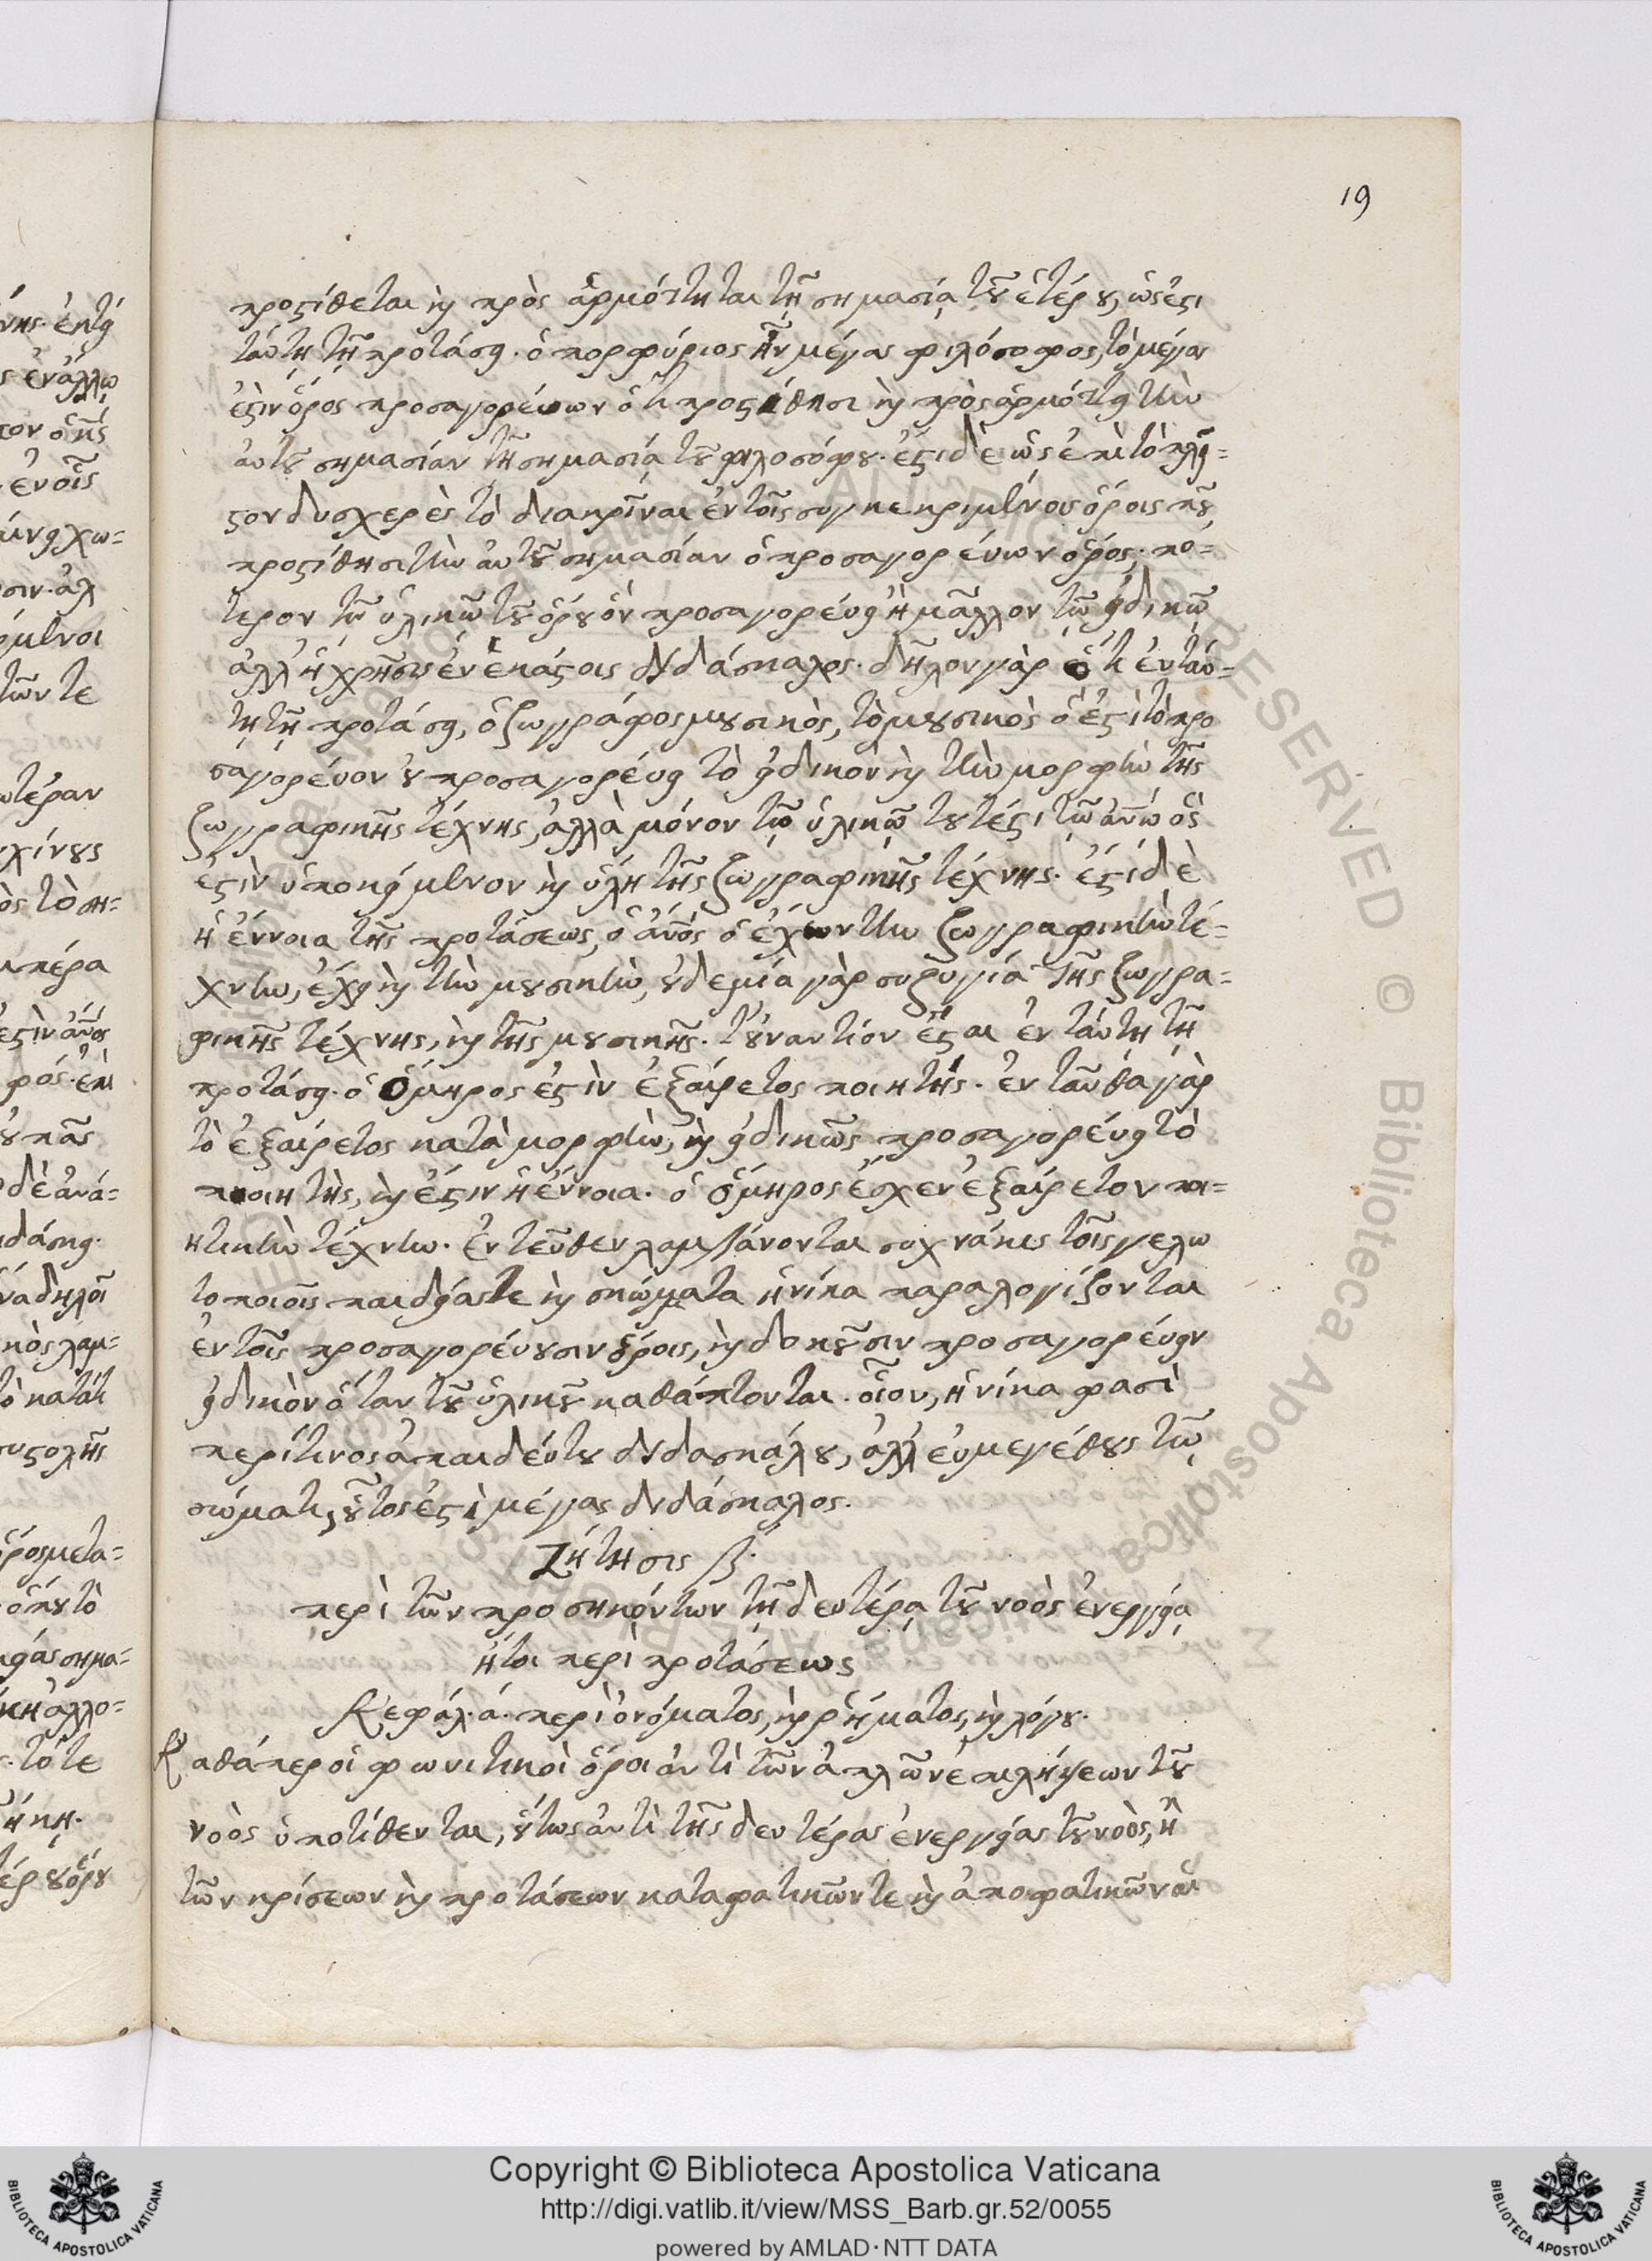 19
προςίθεται καὶ πρὸς ἁρμόττηται τῇ σημασίᾳ τοῦ ἑτέρου, ὡς ἐςι
ταύτῃ τῇ προτάσει. ὁ πορφύριος ἦν μέγας φιλόσοφος, τὸ μέγας
ἐςὶν ὅρος προσαγορεύων ὅτι προςίθησι καὶ πρὸς ἁρμόττει τὴν
αὑτοῦ σημασίαν τῇ σημασίᾳ τοῦ φιλοσόφου. ἐςὶ δὲ ὡς ἐπὶ τὸ πλεῖ=
ςον δυσχερὲς τὸ διακρῖναι ἐν τοῖς συγκεκριμένοις ὅροις ποῦ
προςίθησι τὴν αὑτοῦ σημασίαν ὁ προσαγορεύων ὅρος· πό=
τερον τῷ ὑλικῷ τοῦ ὅρου ὃν προσαγορεύει ἢ μᾶλλον τῷ εἰδικῷ
ἀλλ' ἡ χρῆσις ἐν ἑκάςοις διδάσκαλος. δῆλον γὰρ ὅτι ἐν ταύ=
τῃ τῇ προτάσει, ὁ ζωγράφος μουσικὸς, τὸ μουσικὸς ὅ ἐςι τὸ προ
σαγορέυον οὐ προσαγορέυει τὸ εἰδικὸν καὶ τὴν μορφὴν τῆς
ζωγραφικῆς τέχνης, ἀλλὰ μόνον τῷ ὑλικῷ τουτέςι τῷ ἀνῳ ὅς
ἐςὶν ὑποκείμενον καὶ ὕλη τῆς ζωγραφικῆς τέχνης. ἔςι δὲ
ἡ ἔννοια τῆς προτάσεως, ὁ ἄνος ὁ ἔχων τὴν ζωγραφικὴν τέ=
χνην, ἔχει καὶ τὴν μουσικὴν, οὐδεμία γὰρ συζυγία τῆς ζωγρα=
φικῆς τέχνης, καὶ τῆς μουσικῆς. τοὐναντίον ἔςαι ἐν ταύτῃ τῇ
προτάσει. ὁ ὅμηρος ἐςὶν ἐξαίρετος ποιητής. ἐν ταῦθα γὰρ
τὸ ἐξαίρετος κατὰ μορφὴν, καὶ εἰδικῶς προσαγορέυει τὸ
ποιητὴς, καὶ ἔςιν ἡ ἔννοια. ὁ ὅμηρος ἔσχεν ἐξαίρετον ποι=
ητικὴν τέχνην. ἐντεῦθεν λαμβάνονται συχνάκις τοῖς γελω
τοποιοῖς παιδείας τε καὶ σκώμματα ἡνίκα παραλογίζονται
ἐν τοῖς προσαγορέυουσιν ὅροις, καὶ δοκοῦσιν προσαγορέυειν
εἰδικὸν ὅταν τοῦ ὑλικοῦ καθάπτονται. οἷον, ἡνίκα φασὶ
περί τινος ἀπαιδέυτου διδασκάλου, ἀλλ' ἐυμεγέθους τῷ
σώματι, οὗτος ἐςὶ μέγας διδάσκαλος.
Ζήτησις β.
περὶ τῶν προσηκόντων τῇ δευτέρᾳ τοῦ νοὸς ἐνεργείᾳ
ἤτοι περὶ προτάσεως
Κεφάλ. ά. περὶ ὀνόματος, καὶ ῥήματος, καὶ λόγου.
Καθάπερ οἱ φωνιτικοὶ ὅροι ἀντὶ τῶν ἁπλῶν ἐπιλήψεων τοῦ
νοὸς ὑποτίθενται, οὕτως ἀντὶ τῆς δευτέρας ἐνεργείας τοῦ νοὸς, ἢ
τῶν κρίσεων καὶ προτάσεων καταφατικῶν τε καὶ ἀποφατικῶν αἱ
Copyright © Biblioteca Apostolica Vaticana
http://digi.vatlib.it/view/MSS_Barb.gr.52/0055
powered by AMLAD·NTT DATA